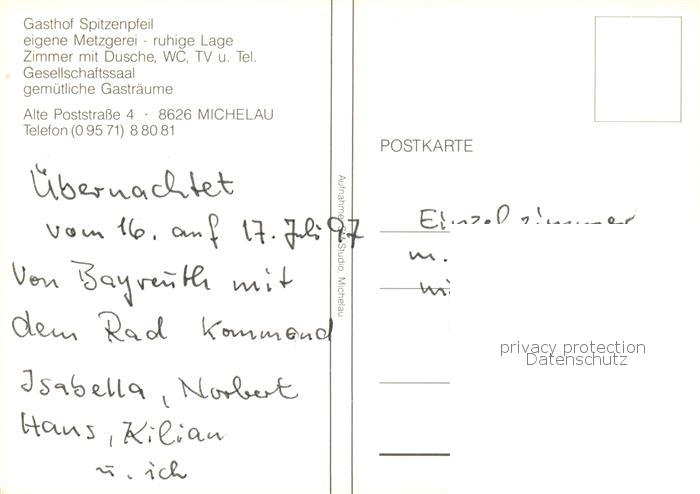 Gasthof Spitzenpfeil
eigene Metzgerei - ruhige Lage
Zimmer mit Dusche, WC, TV u. Tel.
Gesellschaftssaal
gemütliche Gasträume
Alte Poststraße 4 · 8626 MICHELAU
Telefon (0 95 71) 8 80 81
Übernachtet
vom 16. auf 17. Juli 97
von Bayreuth mit
dem Rad kommend
Isabella, Norbert
Hans, Kilian
u. ich
Studio, Michelau
POSTKARTE
Einzelzimmer
m.
privacy protection
Datenschutz